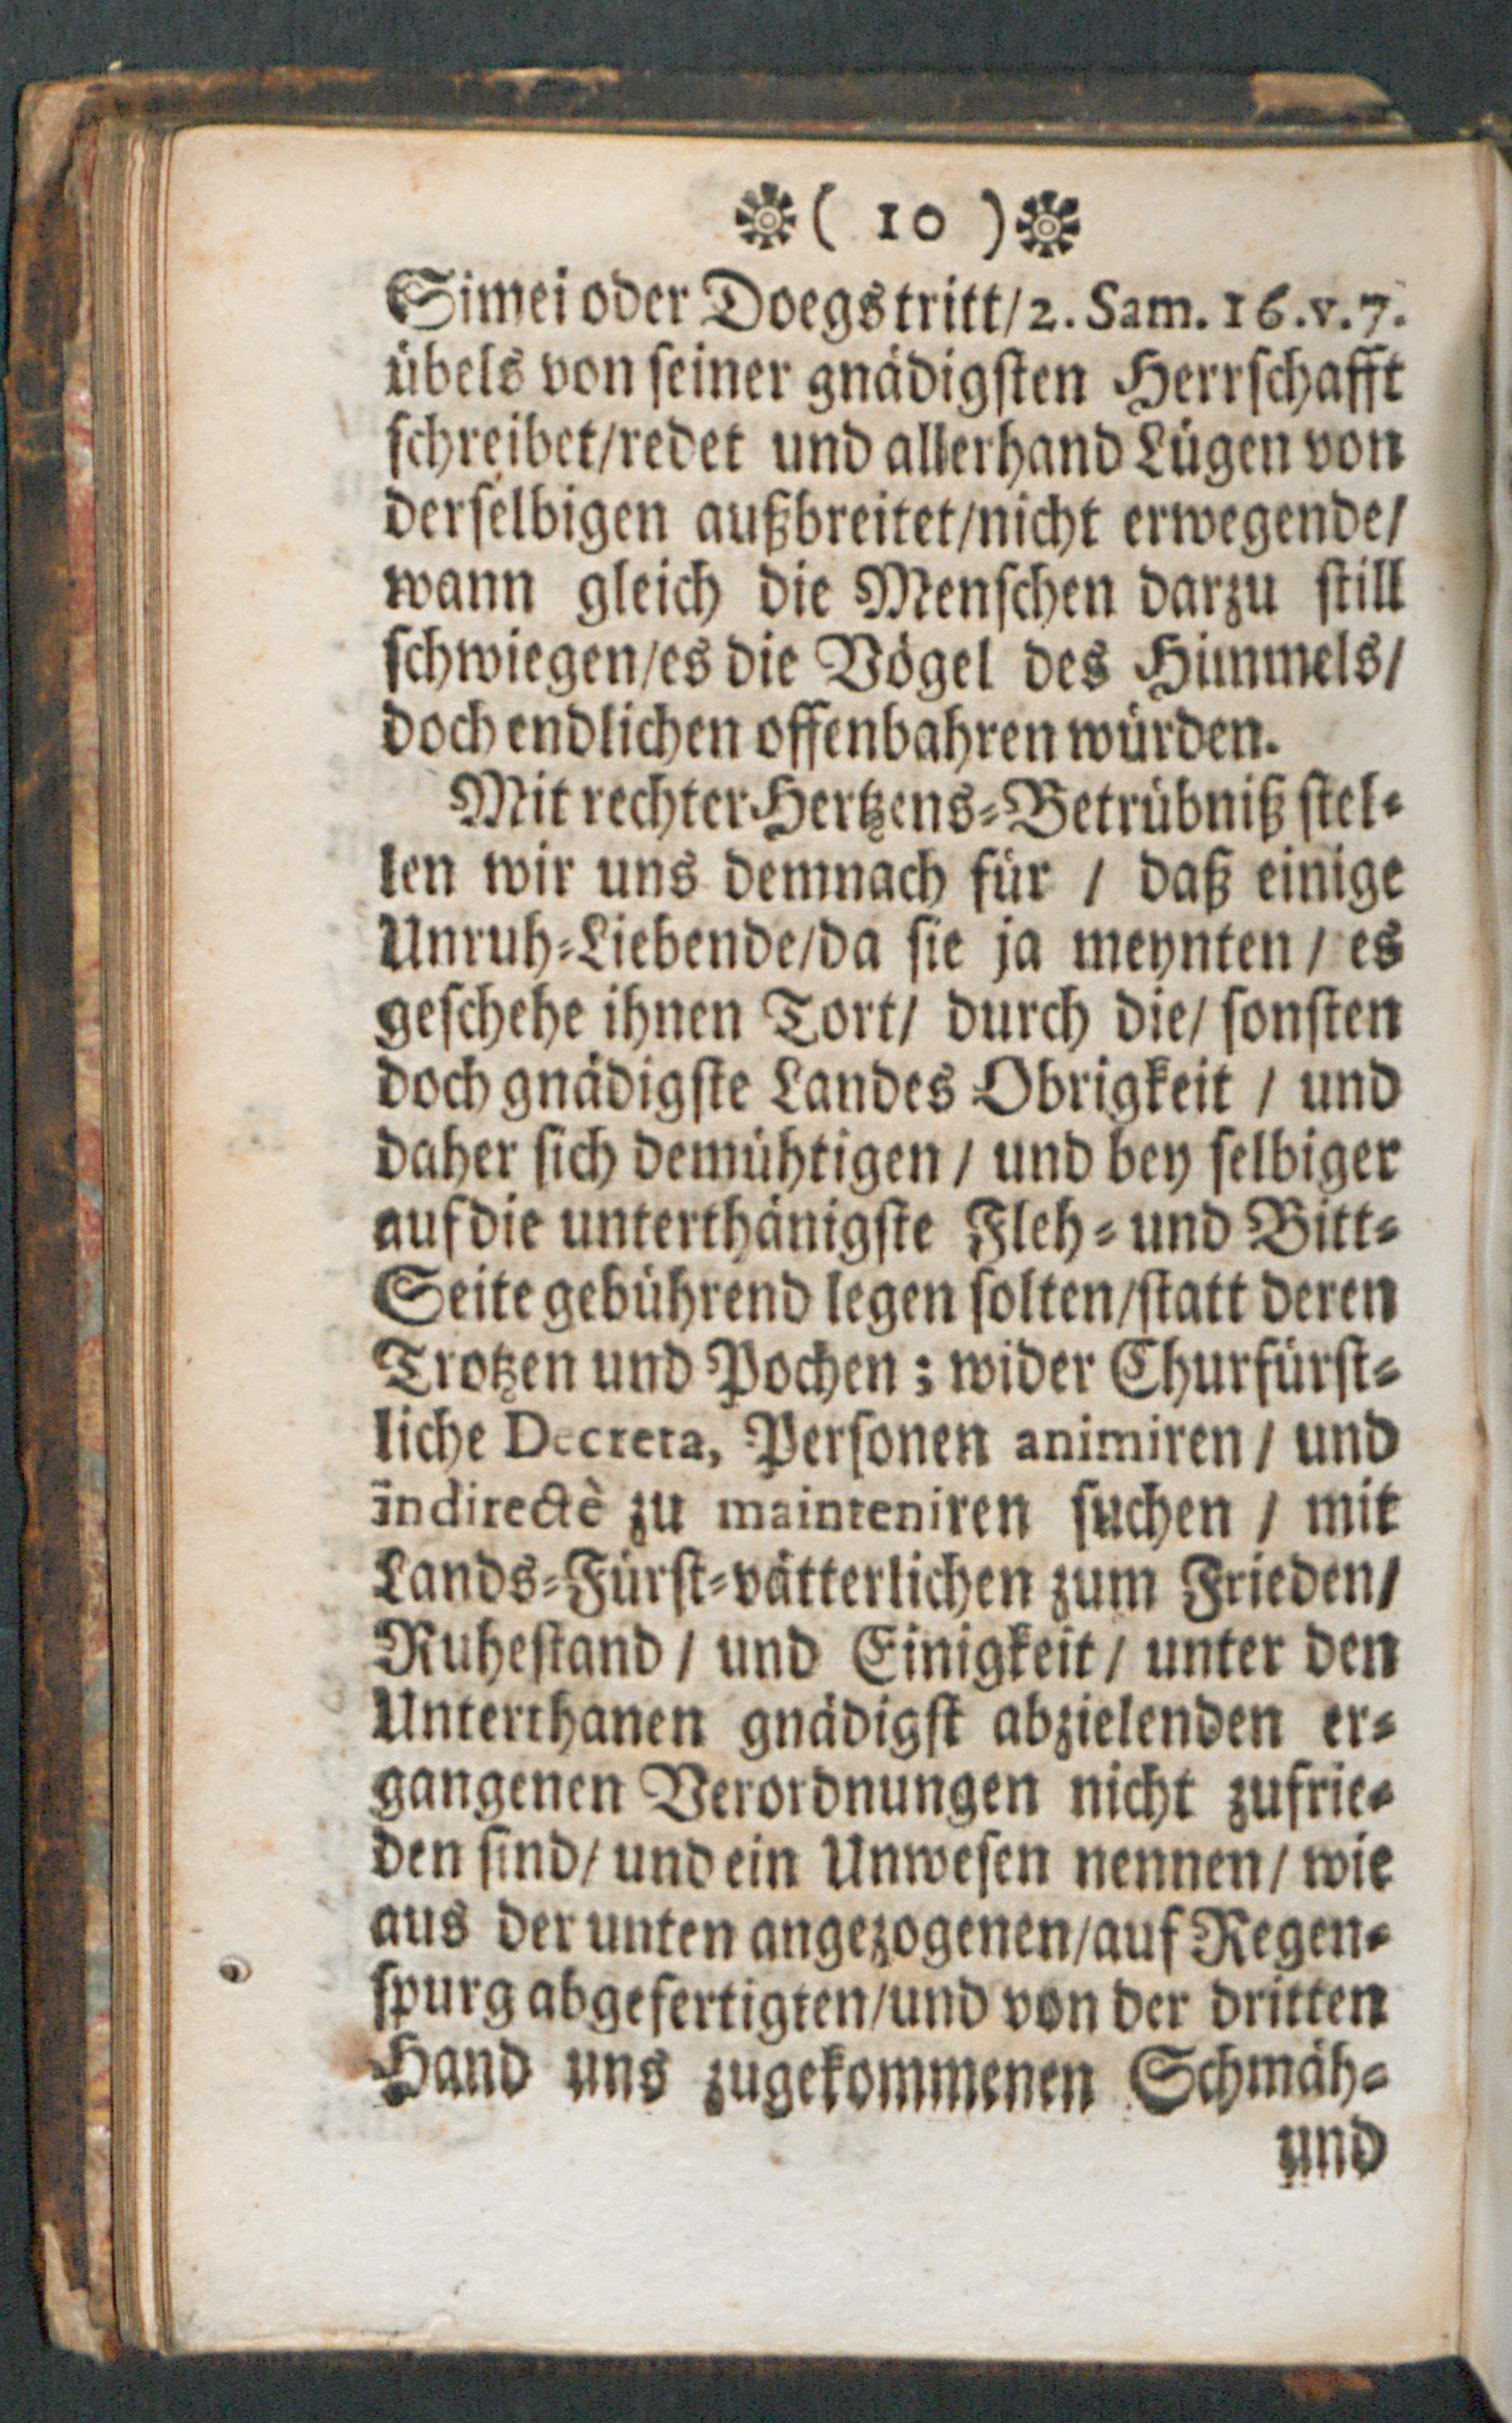 ( 10 )
Simei oder Doegs tritt/ 2. Sam. 16. v. 7.
übels von seiner gnädigsten Herrschafft
schreibet/redet und allerhand Lügen von
derselbigen außbreitet/nicht erwegende/
wann gleich die Menschen darzu still
schwiegen/es die Vögel des Himmels/
doch endlichen offenbahren würden.
Mit rechter Hertzens-Betrübniß stel-
len wir uns demnach für / daß einige
Unruh-Liebende/da sie ja meynten / es
geschehe ihnen Tort/ durch die/ sonsten
doch gnädigste Landes Obrigkeit / und
daher sich demühtigen / und bey selbiger
auf die unterthänigste Fleh- und Bitt-
Seite gebührend legen solten/statt deren
Trotzen und Pochen; wider Churfürst-
liche Decreta, Personen animiren / und
indirectè zu mainteniren suchen / mit
Lands-Fürst-vätterlichen zum Frieden/
Ruhestand / und Einigkeit / unter den
Unterthanen gnädigst abzielenden er-
gangenen Verordnungen nicht zufrie-
den sind/ und ein Unwesen nennen/ wie
aus der unten angezogenen/auf Regen-
spurg abgefertigten/und von der dritten
Hand uns zugekommenen Schmäh-
und